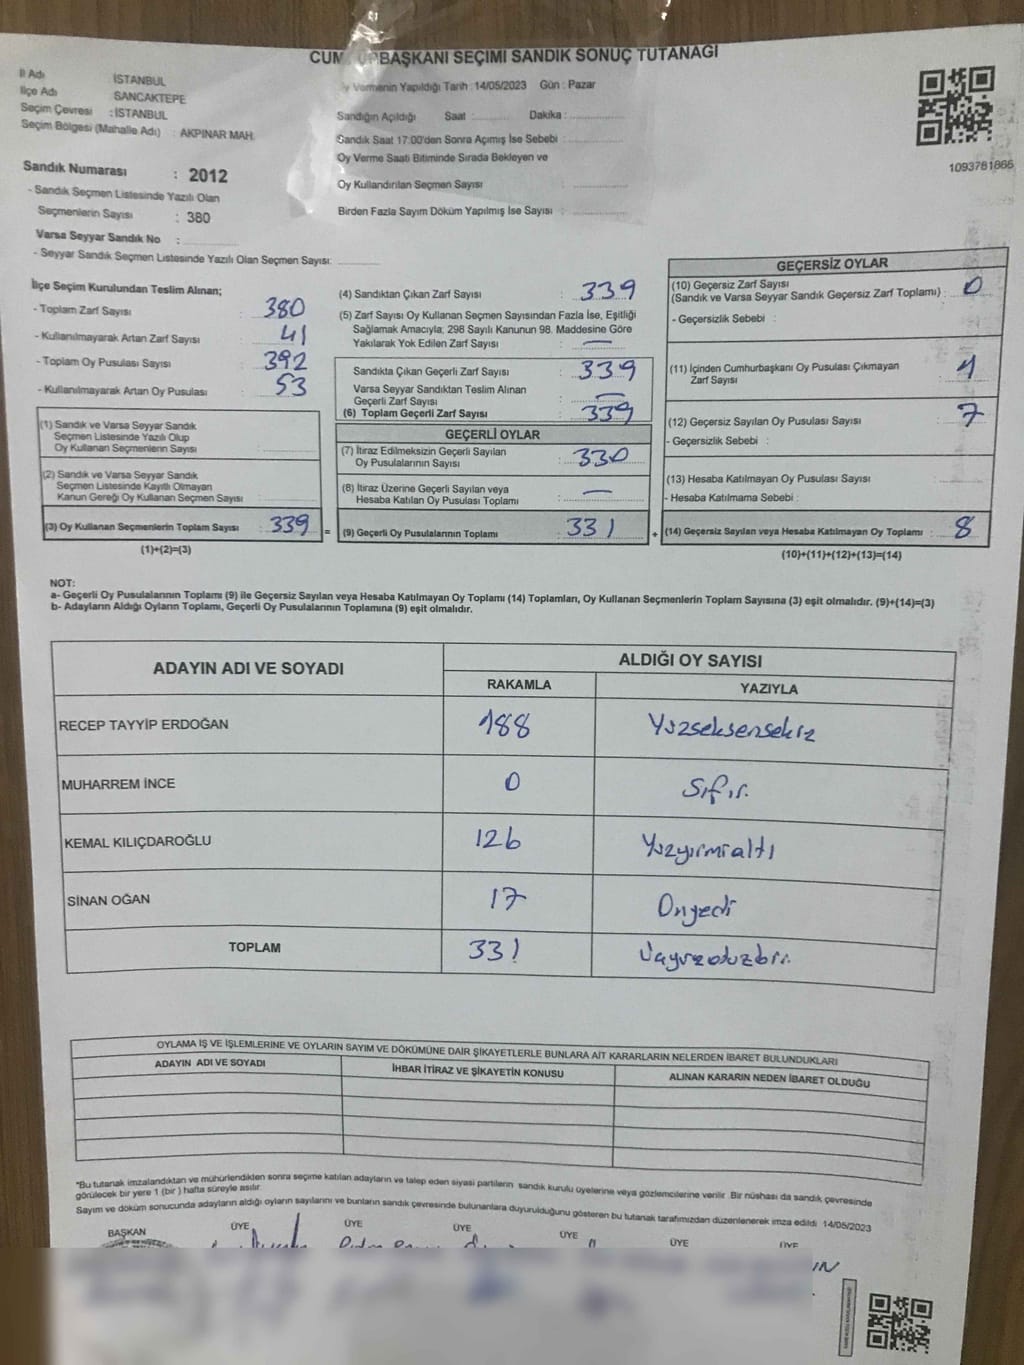 CUMHURBAŞKANI SEÇİMİ SANDIK SONUÇ TUTANAĞI
İl Adı İSTANBUL
İlçe Adı SANCAKTEPE
Seçim Çevresi : İSTANBUL
Seçim Bölgesi (Mahalle Adı) : AKPINAR MAH.
Oy Vermenin Yapıldığı Tarih : 14/05/2023 Gün : Pazar
Sandığın Açıldığı Saat : Dakika :
Sandık Saat 17:00'den Sonra Açımış İse Sebebi :
Oy Verme Saati Bitiminde Sırada Bekleyen ve
Oy Kullandırılan Seçmen Sayısı :
Birden Fazla Sayım Döküm Yapılmış İse Sayısı :
1093781866
Sandık Numarası : 2012
- Sandık Seçmen Listesinde Yazılı Olan
Seçmenlerin Sayısı : 380
Varsa Seyyar Sandık No :
- Seyyar Sandık Seçmen Listesinde Yazılı Olan Seçmen Sayısı:
İlçe Seçim Kurulundan Teslim Alınan;
- Toplam Zarf Sayısı : 380
- Kullanılmayarak Artan Zarf Sayısı : 41
- Toplam Oy Pusulası Sayısı : 392
- Kullanılmayarak Artan Oy Pusulası : 53
(1) Sandık ve Varsa Seyyar Sandık
Seçmen Listesinde Yazılı Olup
Oy Kullanan Seçmenlerin Sayısı :
(2) Sandık ve Varsa Seyyar Sandık
Seçmen Listesinde Kayıtlı Olmayan
Kanun Gereği Oy Kullanan Seçmen Sayısı :
(3) Oy Kullanan Seçmenlerin Toplam Sayısı : 339 =
(1)+(2)=(3)
(4) Sandıktan Çıkan Zarf Sayısı : 339
(5) Zarf Sayısı Oy Kullanan Seçmen Sayısından Fazla İse, Eşitliği
Sağlamak Amacıyla; 298 Sayılı Kanunun 98. Maddesine Göre
Yakılarak Yok Edilen Zarf Sayısı : —
Sandıkta Çıkan Geçerli Zarf Sayısı : 339
Varsa Seyyar Sandıktan Teslim Alınan
Geçerli Zarf Sayısı : —
(6) Toplam Geçerli Zarf Sayısı : 339
GEÇERLİ OYLAR
(7) İtiraz Edilmeksizin Geçerli Sayılan
Oy Pusulalarının Sayısı : 330
(8) İtiraz Üzerine Geçerli Sayılan veya
Hesaba Katılan Oy Pusulası Toplamı : —
(9) Geçerli Oy Pusulalarının Toplamı : 331 +
GEÇERSİZ OYLAR
(10) Geçersiz Zarf Sayısı
(Sandık ve Varsa Seyyar Sandık Geçersiz Zarf Toplamı) : 0
- Geçersizlik Sebebi :
(11) İçinden Cumhurbaşkanı Oy Pusulası Çıkmayan
Zarf Sayısı : 1
(12) Geçersiz Sayılan Oy Pusulası Sayısı : 7
- Geçersizlik Sebebi :
(13) Hesaba Katılmayan Oy Pusulası Sayısı :
- Hesaba Katılmama Sebebi :
(14) Geçersiz Sayılan veya Hesaba Katılmayan Oy Toplamı : 8
(10)+(11)+(12)+(13)=(14)
NOT:
a- Geçerli Oy Pusulalarının Toplamı (9) ile Geçersiz Sayılan veya Hesaba Katılmayan Oy Toplamı (14) Toplamları, Oy Kullanan Seçmenlerin Toplam Sayısına (3) eşit olmalıdır. (9)+(14)=(3)
b- Adayların Aldığı Oyların Toplamı, Geçerli Oy Pusulalarının Toplamına (9) eşit olmalıdır.
ADAYIN ADI VE SOYADI ALDIĞI OY SAYISI
RAKAMLA YAZIYLA
RECEP TAYYİP ERDOĞAN 188 Yüzseksensekiz
MUHARREM İNCE 0 Sıfır.
KEMAL KILIÇDAROĞLU 126 Yüzyirmialtı
SİNAN OĞAN 17 Onyedi
TOPLAM 331 Üçyüzotuzbir.
OYLAMA İŞ VE İŞLEMLERİNE VE OYLARIN SAYIM VE DÖKÜMÜNE DAİR ŞİKAYETLERLE BUNLARA AİT KARARLARIN NELERDEN İBARET BULUNDUKLARI
ADAYIN ADI VE SOYADI İHBAR İTİRAZ VE ŞİKAYETİN KONUSU ALINAN KARARIN NEDEN İBARET OLDUĞU
*Bu tutanak imzalandıktan ve mühürlendikten sonra seçime katılan adayların ve talep eden siyasi partilerin sandık kurulu üyelerine veya gözlemcilerine verilir. Bir nüshası da sandık çevresinde
görülecek bir yere 1 (bir ) hafta süreyle asılır.
Sayım ve döküm sonucunda adayların aldığı oyların sayılarını ve bunların sandık çevresinde bulunanlara duyurulduğunu gösteren bu tutanak tarafımızdan düzenlenerek imza edildi 14/05/2023
BAŞKAN ÜYE ÜYE ÜYE ÜYE ÜYE ÜYE